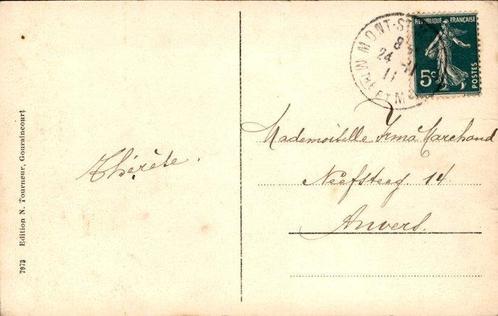 7973 Edition N. Tourneur, Gouraincourt
Thérèse.
MONT-ST
8
24
11
MEURTHE ET M
RÉPUBLIQUE FRANÇAISE
5c
POSTES
Mademoiselle Irma Marchand
Neefsteeg. 14
Anvers.